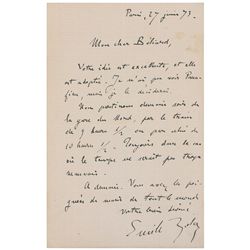 Paris, 27 juin 73.
Mon cher Béliard,
Votre idée est excellente, et elle
est adoptée. Je n'ai pas vu
mais je le déciderai.
Nous partirons demain soir de
la gare du Nord, par le train
de 9 heures 1/2 ou par celui de
10 heures 1/2. Toujours dans le cas
où le temps ne serait pas trop
mauvais.
A demain. Vous avez les poi-
gnées de main de tout le monde
Votre bien dévoué
Emile Zola